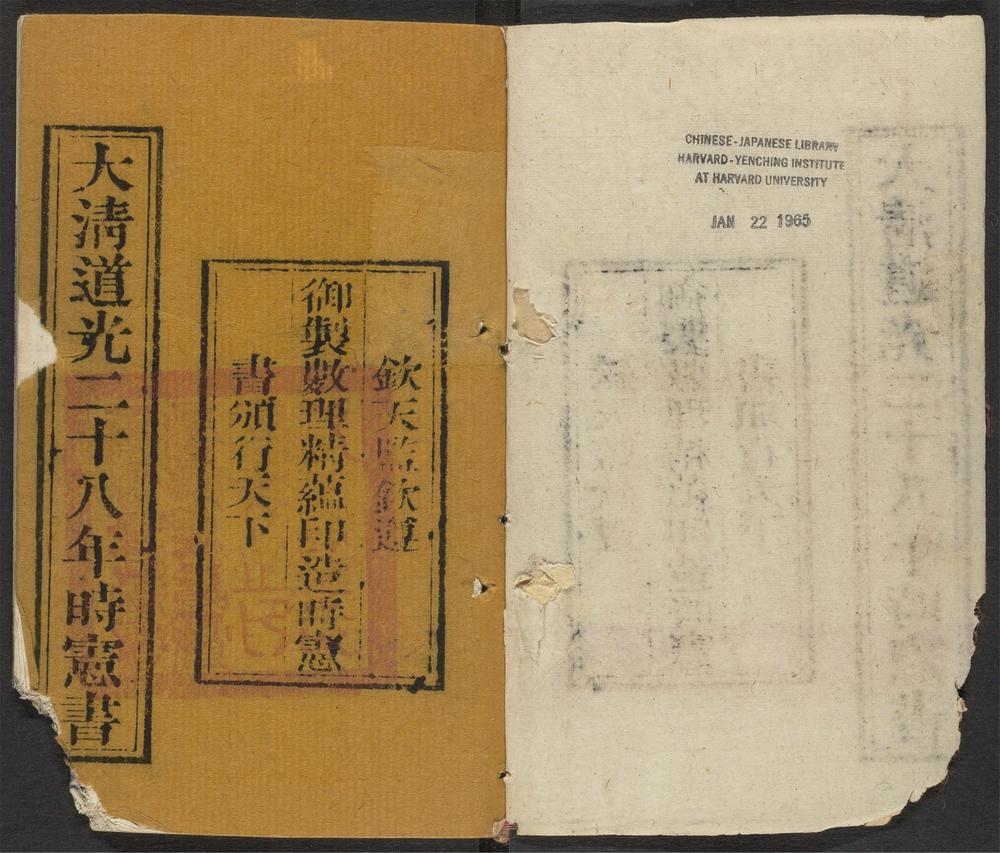 大清道光二十八年時憲書
欽天監欽遵
御製數理精蘊印造時憲
書頒行天下
CHINESE-JAPANESE LIBRARY
HARVARD-YENCHING INSTITUTE
AT HARVARD UNIVERSITY
JAN 22 1965